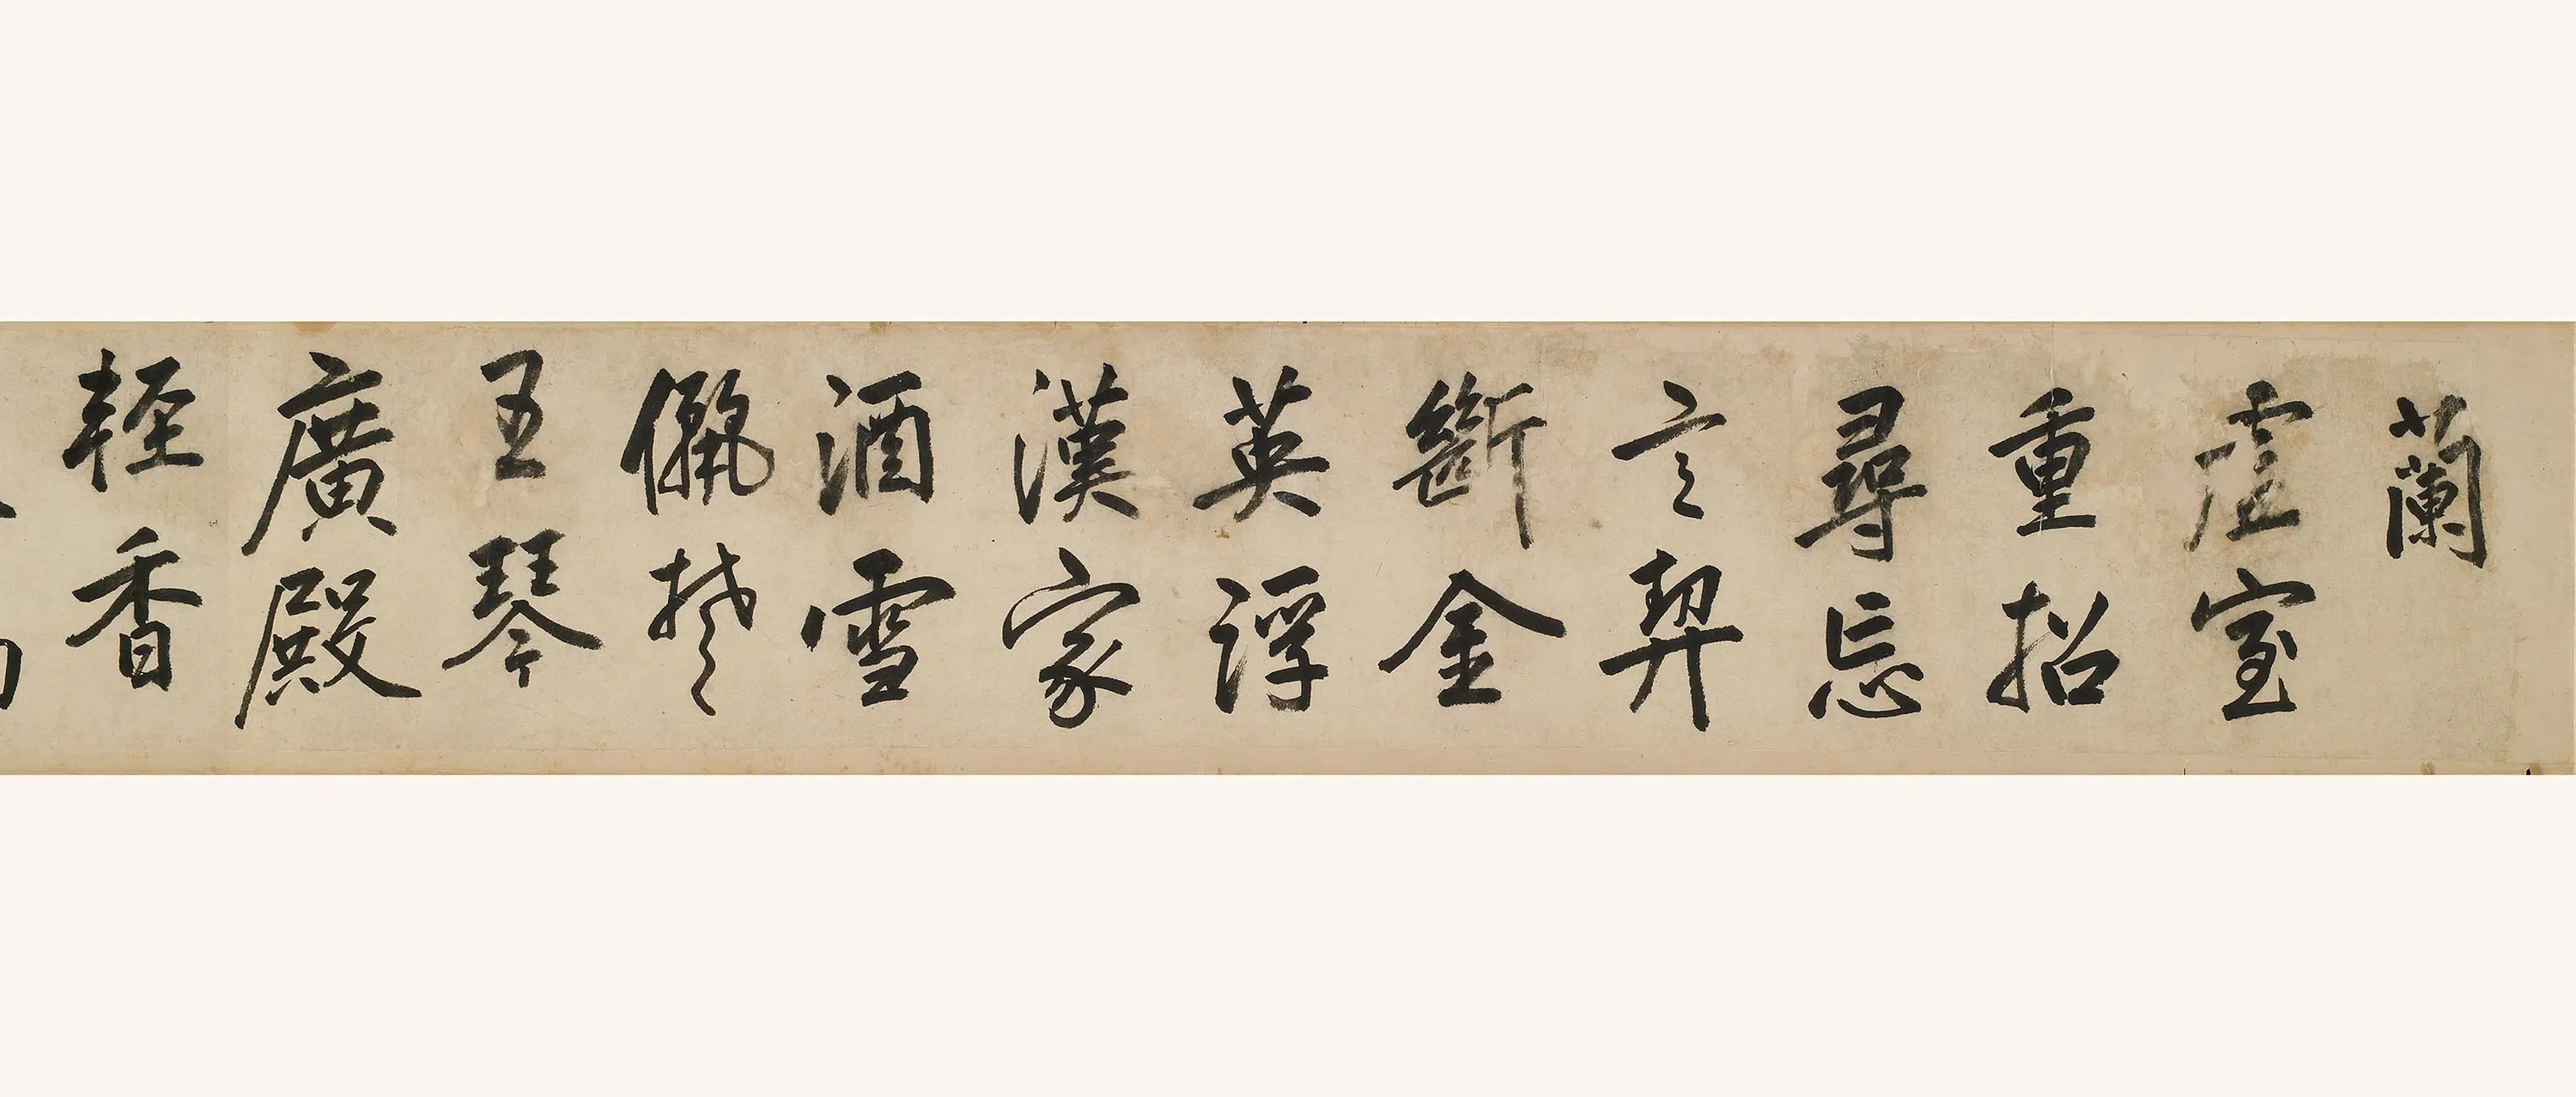 蘭
虛室
重招
尋忘
言契
斷金
英浮
漢家
酒雪
儷楚
王琴
廣殿
輕香